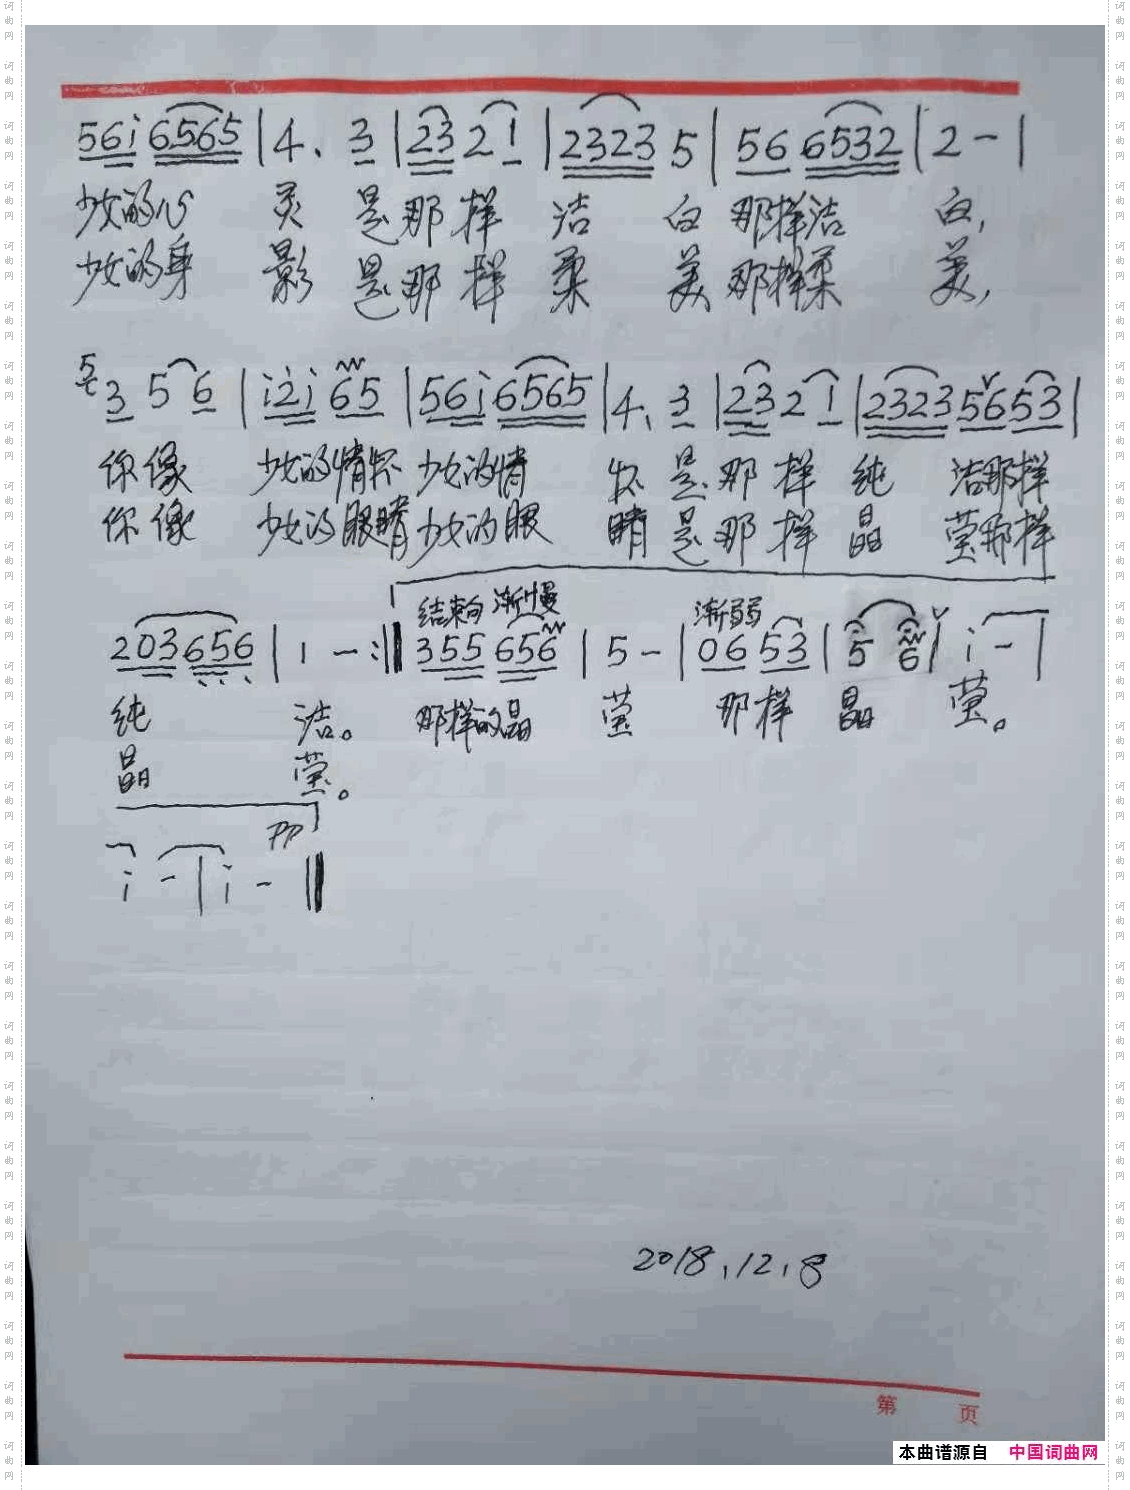 56i 6565 | 4. 3 | 23 2 1 | 2323 5 | 56 6532 | 2 - |
少女的心 灵 是那 样 洁 白 那样洁 白,
少女的身 影 是那 样 柔 美 那样柔 美,
5 3 5 6 | i2i 65 | 56i 6565 | 4. 3 | 23 2 1 | 2323 5653 |
你像 少女的情怀 少女的情 怀 是那 样 纯 洁那样
你像 少女的眼睛 少女的眼 睛 是那 样 晶 莹那样
结束句 渐慢 渐弱
203 656 | 1 - :‖ 355 656 | 5 - | 06 53 | 5 6 | i - |
纯 洁。 那样的晶 莹 那样 晶 莹。
晶 莹。
pp
i - | i - ‖
2018.12.8
第 页
本曲谱源自 中国词曲网